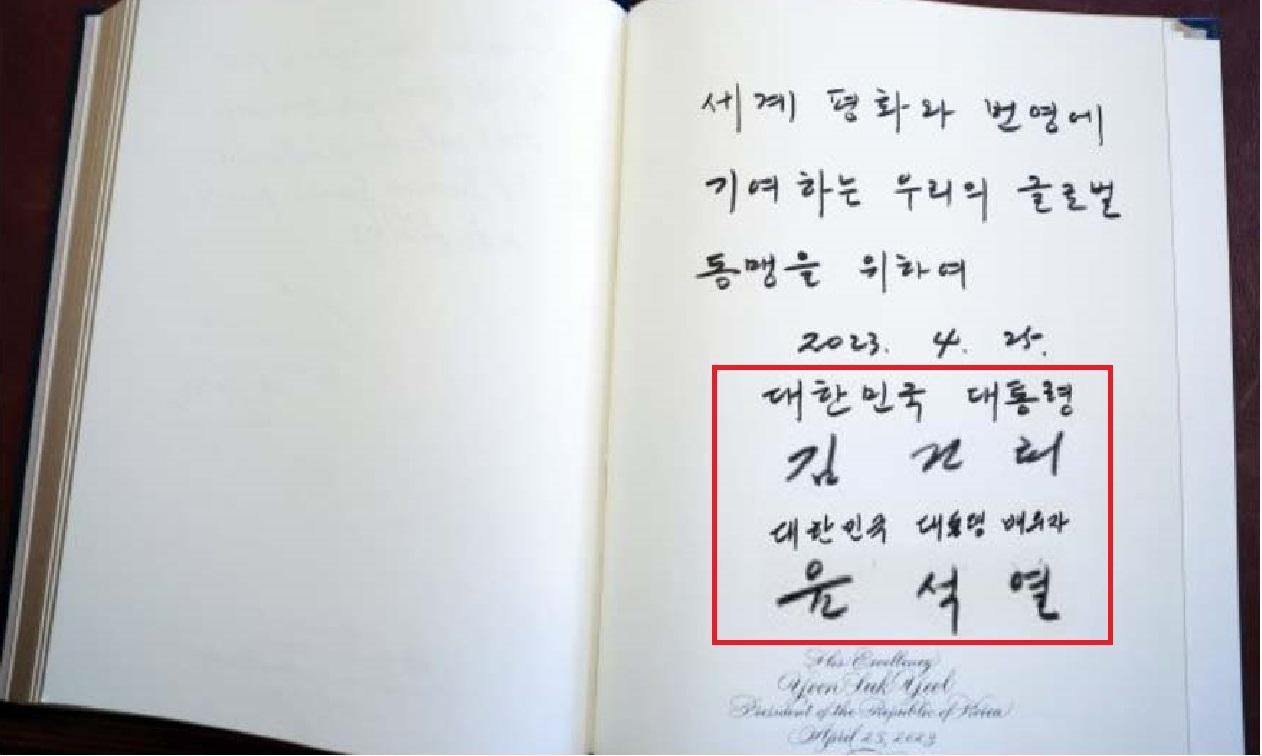 세계 평화와 번영에
기여하는 우리의 글로벌
동맹을 위하여
2023. 4. 25.
대한민국 대통령
김 건 희
대한민국 대통령 배우자
윤 석 열
His Excellency
Yoon Suk Yeol
President of the Republic of Korea
April 25, 2023